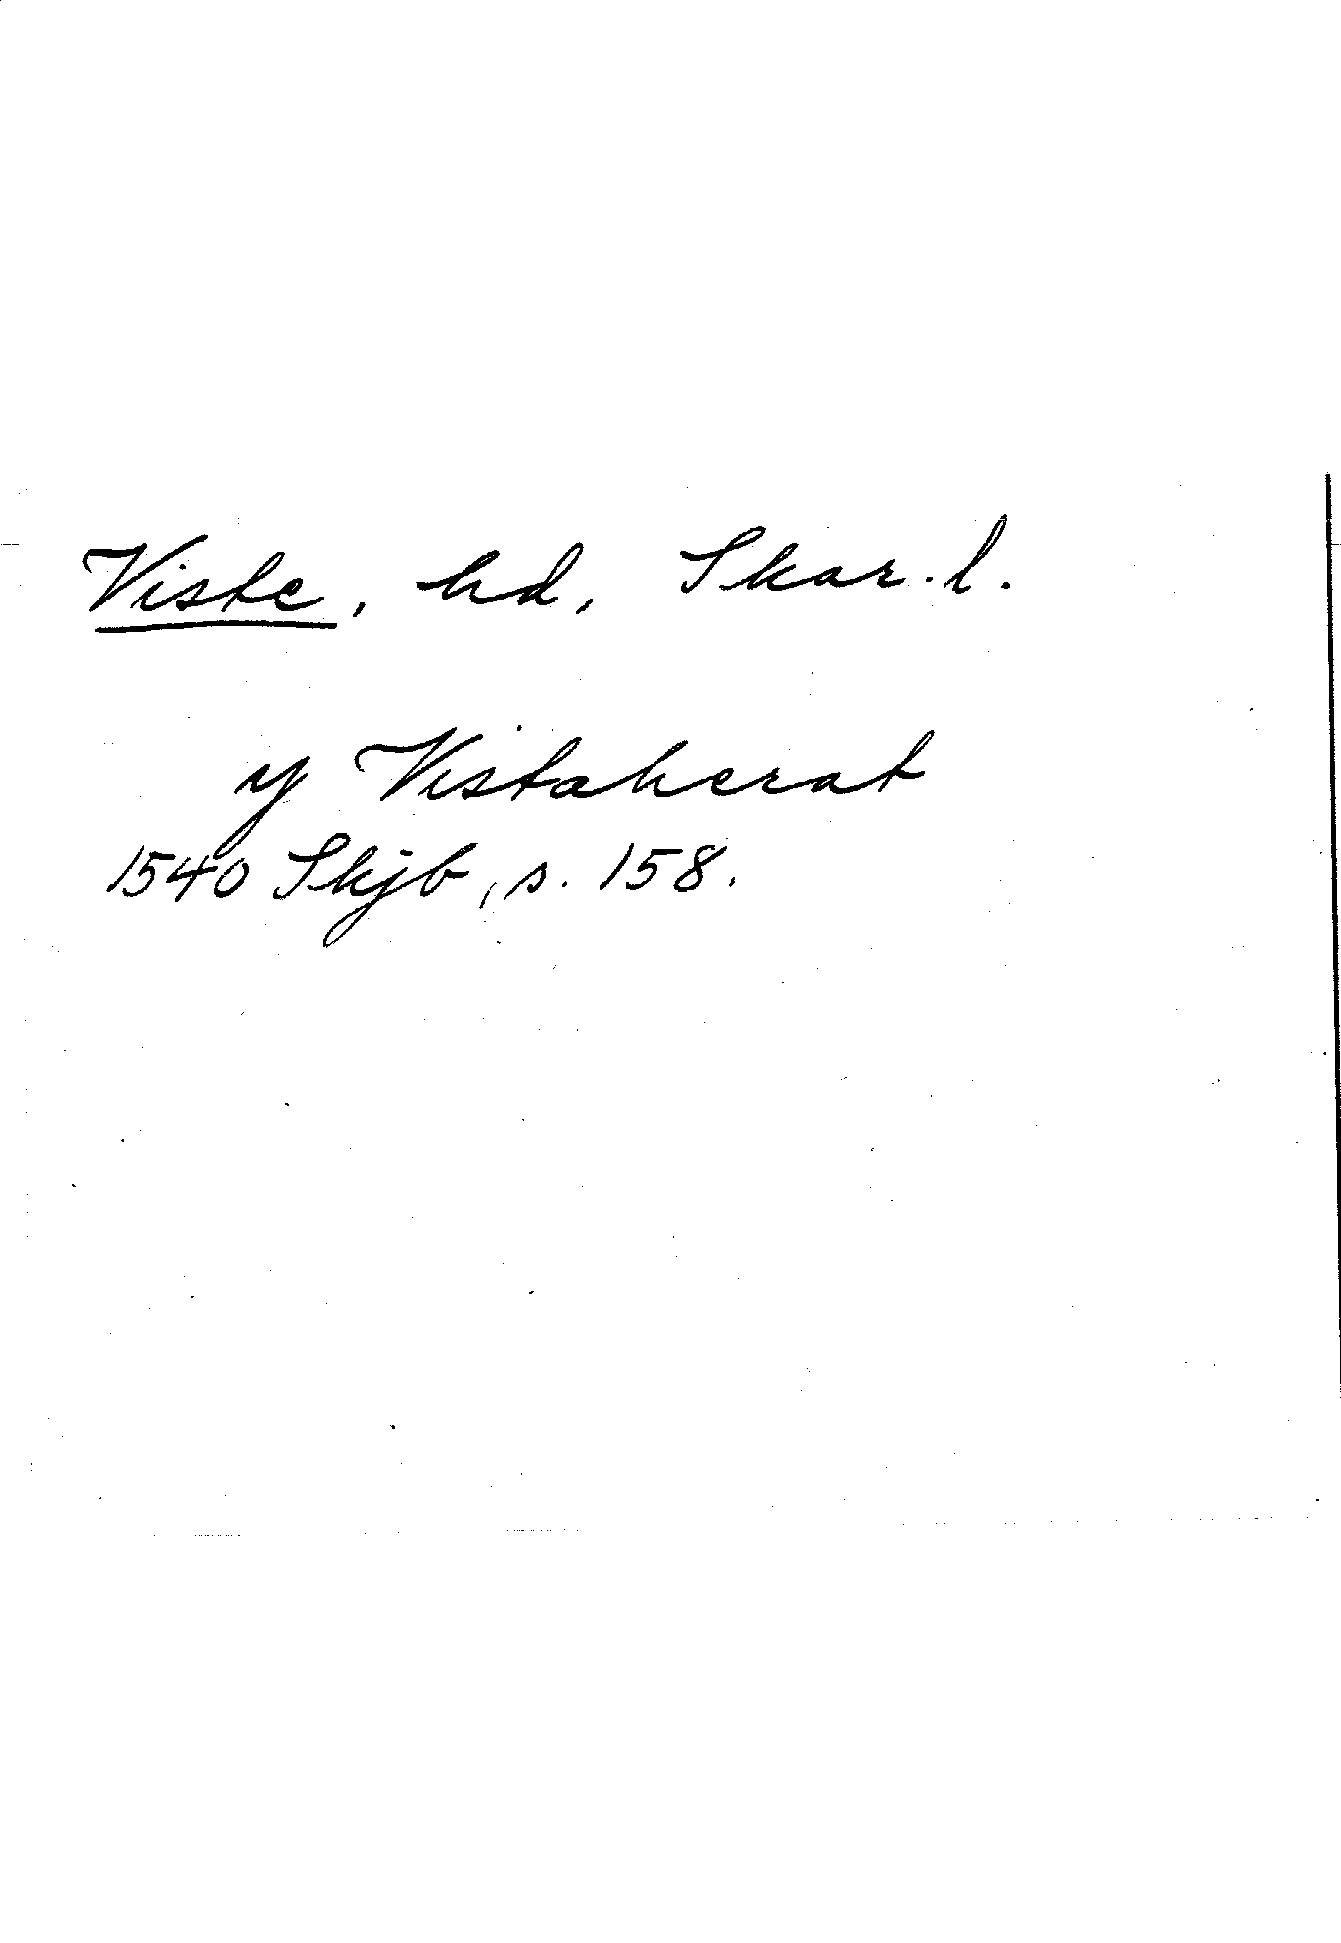 Viste, hd, Skar.l.
y Vistaherat
1540 Skjb, s. 158.